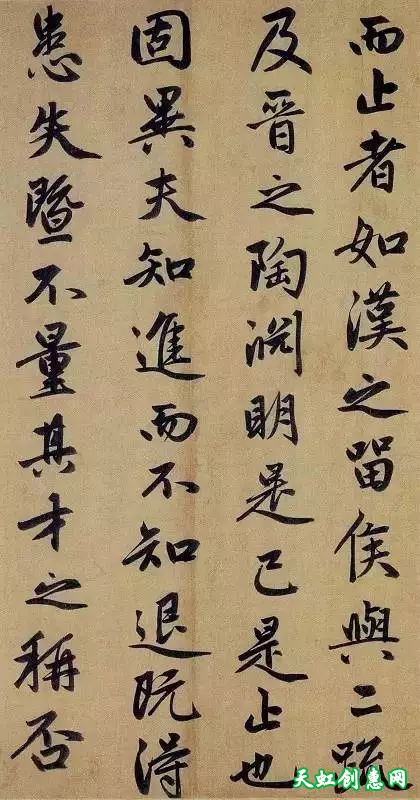 而止者如漢之留侯與二疏
及晉之陶渊明是已是止也
固異夫知進而不知退既得
患失暨不量其才之稱否
天虹创惠网